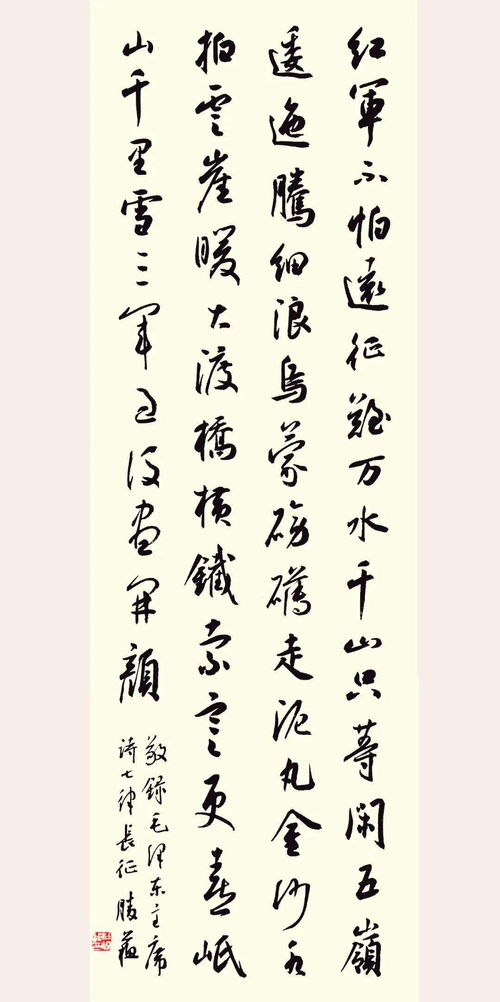 红軍不怕遠征難万水千山只等闲五嶺
逶迤騰細浪烏蒙磅礴走泥丸金沙水
拍雲崖暖大渡橋横鐵索寒更喜岷
山千里雪三军过后尽开顔
敬録毛泽东主席
诗七律長征 勝